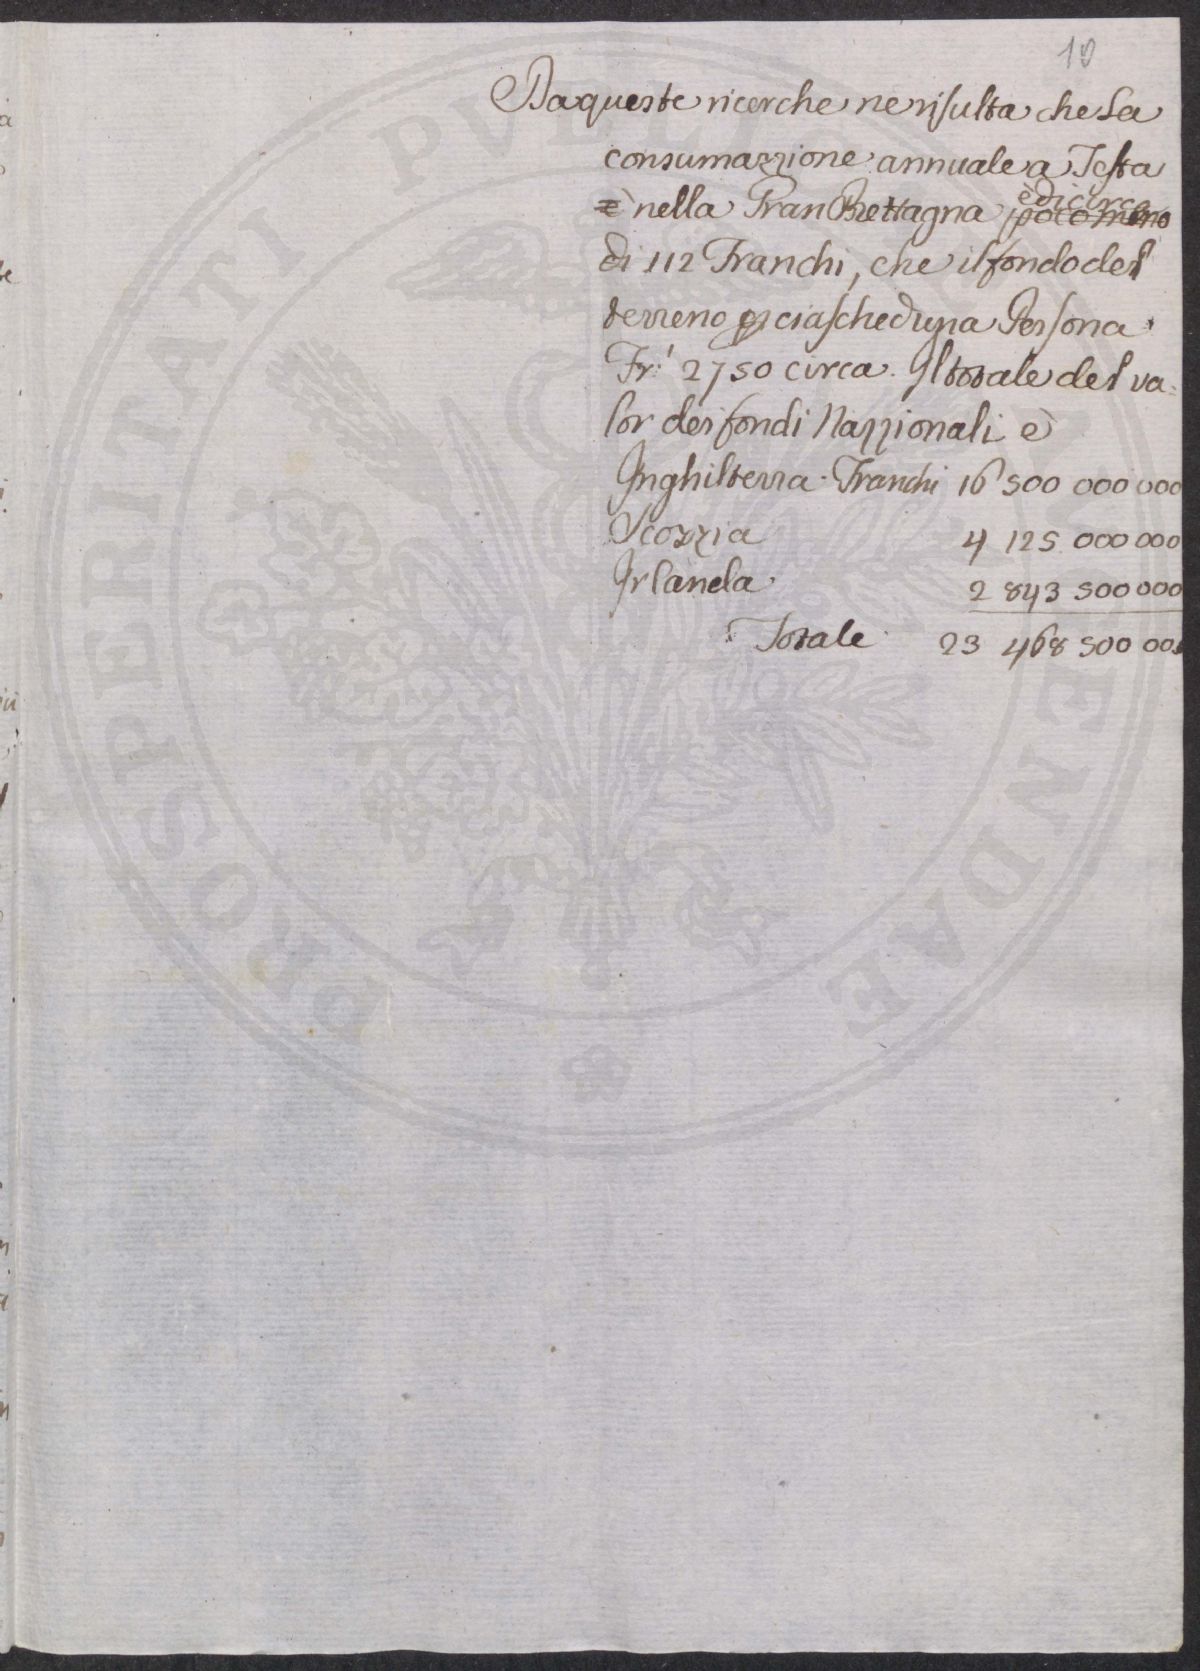 10
Da queste ricerche ne risulta che La
consumazzione annuale a Testa
è nella Gran Brettagna è di circa poco meno
di 112 Franchi, che il fondo del
terreno per ciascheduna Persona
Fr.' 2750 circa. Il totale del va-
lor dei fondi Nazzionali è
Inghilterra. Franchi 16 500 000 000
Scozzia 4 125 000 000
Irlanda 2 843 500 000
Totale 23 468 500 000
PROSPERITATI PUBLICAE AUGENDAE